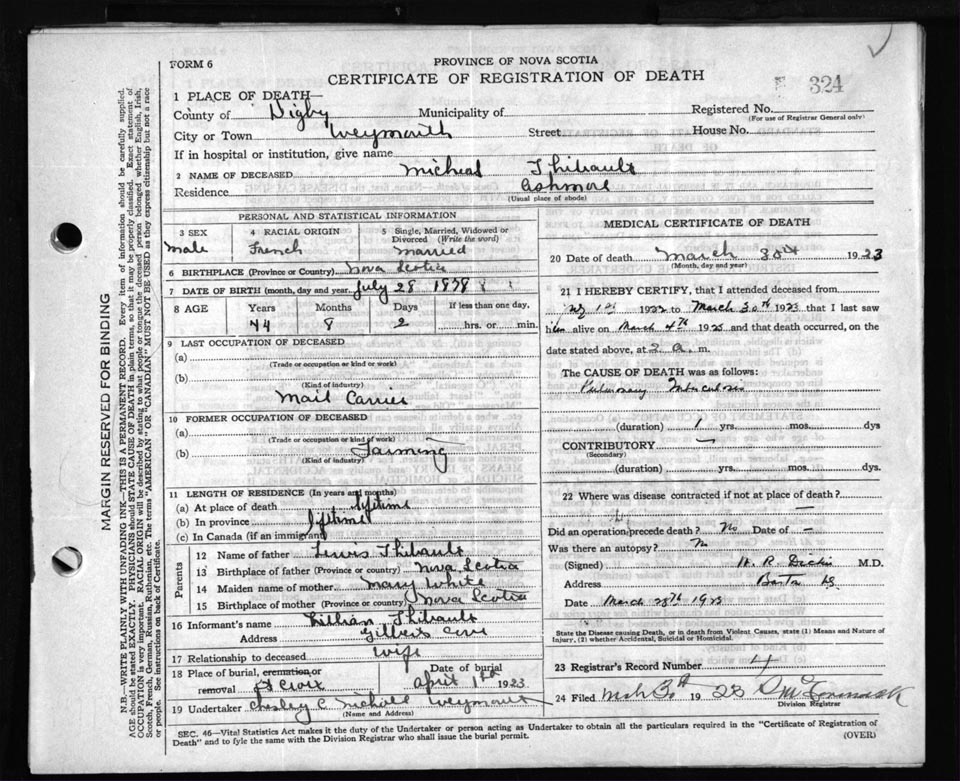 FORM 6
PROVINCE OF NOVA SCOTIA
CERTIFICATE OF REGISTRATION OF DEATH
324
1 PLACE OF DEATH—
County of Digby Municipality of Registered No.
(For use of Registrar General only)
City or Town Weymouth Street House No.
If in hospital or institution, give name
2 NAME OF DECEASED Micheal Thibault
Residence Ashmore
(Usual place of abode)
PERSONAL AND STATISTICAL INFORMATION
3 SEX 4 RACIAL ORIGIN 5 Single, Married, Widowed or Divorced (Write the word)
male French married
6 BIRTHPLACE (Province or Country) Nova Scotia
7 DATE OF BIRTH (month, day and year) July 28 1878
8 AGE Years Months Days If less than one day,
44 8 2 hrs. or min.
9 LAST OCCUPATION OF DECEASED
(a)
(Trade or occupation or kind or work)
(b)
(Kind of industry)
Mail Carrier
10 FORMER OCCUPATION OF DECEASED
(a)
(Trade or occupation or kind of work)
(b) Farming
(Kind of industry)
11 LENGTH OF RESIDENCE (In years and months)
(a) At place of death lifetime
(b) In province lifetime
(c) In Canada (if an immigrant)
Parents
12 Name of father Lewis Thibault
13 Birthplace of father (Province or country) Nova Scotia
14 Maiden name of mother Mary White
15 Birthplace of mother (Province or country) Nova Scotia
16 Informant's name Lillian Thibault
Address Gilberts Cove
17 Relationship to deceased wife
18 Place of burial, cremation or removal St Croix Date of burial April 1st 1923
19 Undertaker Chesley C Nichall Weymouth
(Name and Address)
MEDICAL CERTIFICATE OF DEATH
20 Date of death March 30th 1923
(Month, day and year)
21 I HEREBY CERTIFY, that I attended deceased from
1st 1922 to March 30th 1923 that I last saw
him alive on March 4th 1923 and that death occurred, on the
date stated above, at 2 a. m.
The CAUSE OF DEATH was as follows:
Pulmonary Tuberculosis
(duration) 1 yrs. mos. dys
CONTRIBUTORY —
(Secondary)
(duration) yrs. mos. dys.
22 Where was disease contracted if not at place of death?
—
Did an operation precede death? No Date of —
Was there an autopsy? No
(Signed) M.D.
Address
Date March 28th 1923
State the Disease causing Death, or in death from Violent Causes, state (1) Means and Nature of
Injury, (2) whether Accidental, Suicidal or Homicidal.
23 Registrar's Record Number 4
24 Filed Mch 30th 1923
Division Registrar
SEC. 46—Vital Statistics Act makes it the duty of the Undertaker or person acting as Undertaker to obtain all the particulars required in the "Certificate of Registration of
Death" and to fyle the same with the Division Registrar who shall issue the burial permit. (OVER)
MARGIN RESERVED FOR BINDING
N.B.—WRITE PLAINLY WITH UNFADING INK—THIS IS A PERMANENT RECORD. Every item of information should be carefully supplied.
AGE should be stated EXACTLY. PHYSICIANS should STATE CAUSE OF DEATH in plain terms, so that it may be properly classified. Exact statement of
OCCUPATION is very important. RACIAL ORIGIN will be described by stating to what people or tongue the deceased person belonged whether English, Irish,
Scotch, French, German, Russian, Ruthenian, etc. The terms "AMERICAN" OR "CANADIAN" MUST NOT BE USED as they express citizenship but not a race
or people. See instructions on back of Certificate.